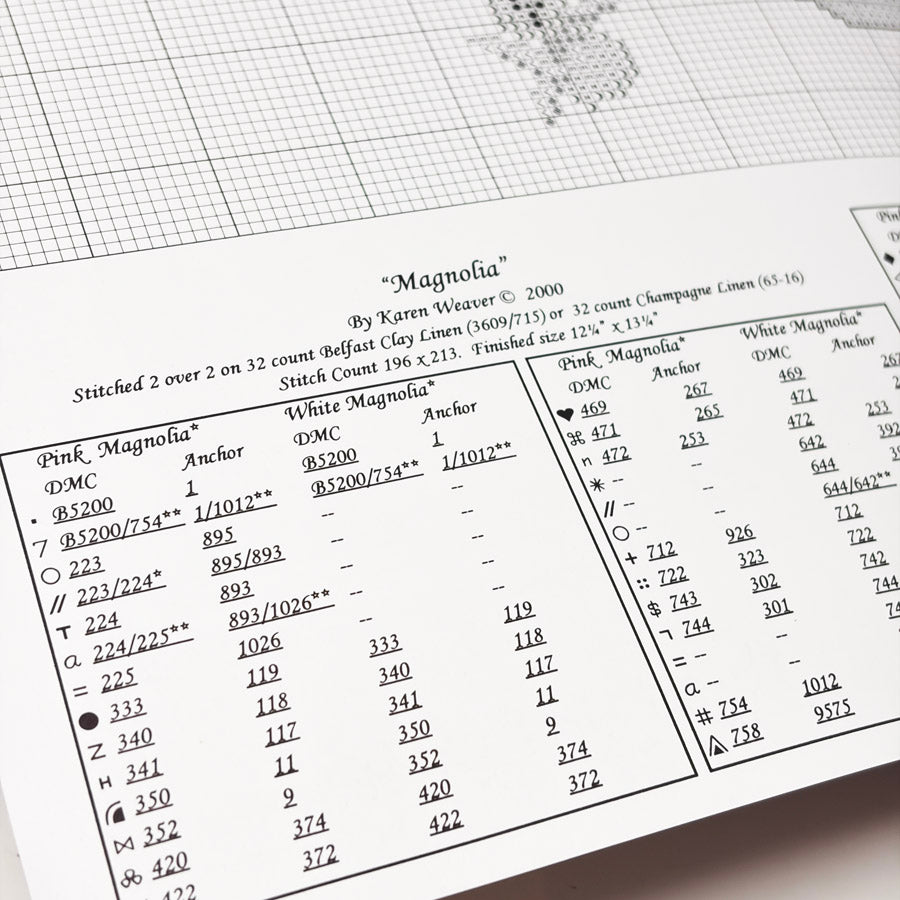 "Magnolia"
By Karen Weaver © 2000
Stitched 2 over 2 on 32 count Belfast Clay Linen (3609/715) or 32 count Champagne Linen (65-16)
Stitch Count 196 x 213. Finished size 12¼" x 13¼"
Pink Magnolia* White Magnolia*
DMC Anchor DMC Anchor
B5200 1 B5200 1
B5200/754** 1/1012** B5200/754** 1/1012**
223 895 -- --
// 223/224* 895/893 -- --
T 224 893 -- --
a 224/225** 893/1026** -- --
= 225 1026 -- --
● 333 119 333 119
Z 340 118 340 118
H 341 117 341 117
350 11 350 11
⋈ 352 9 352 9
420 374 420 374
422 372 422 372
Pink Magnolia* White Magnolia*
DMC Anchor DMC Anchor
♥ 469 267 469 267
⌘ 471 265 471
n 472 253 472 253
* -- -- 642 392
// -- -- 644
○ -- -- 644/642**
+ 712 926 712
:: 722 323 722
$ 743 302 742
¬ 744 301 744
= -- --
a -- --
# 754 1012
758 9575